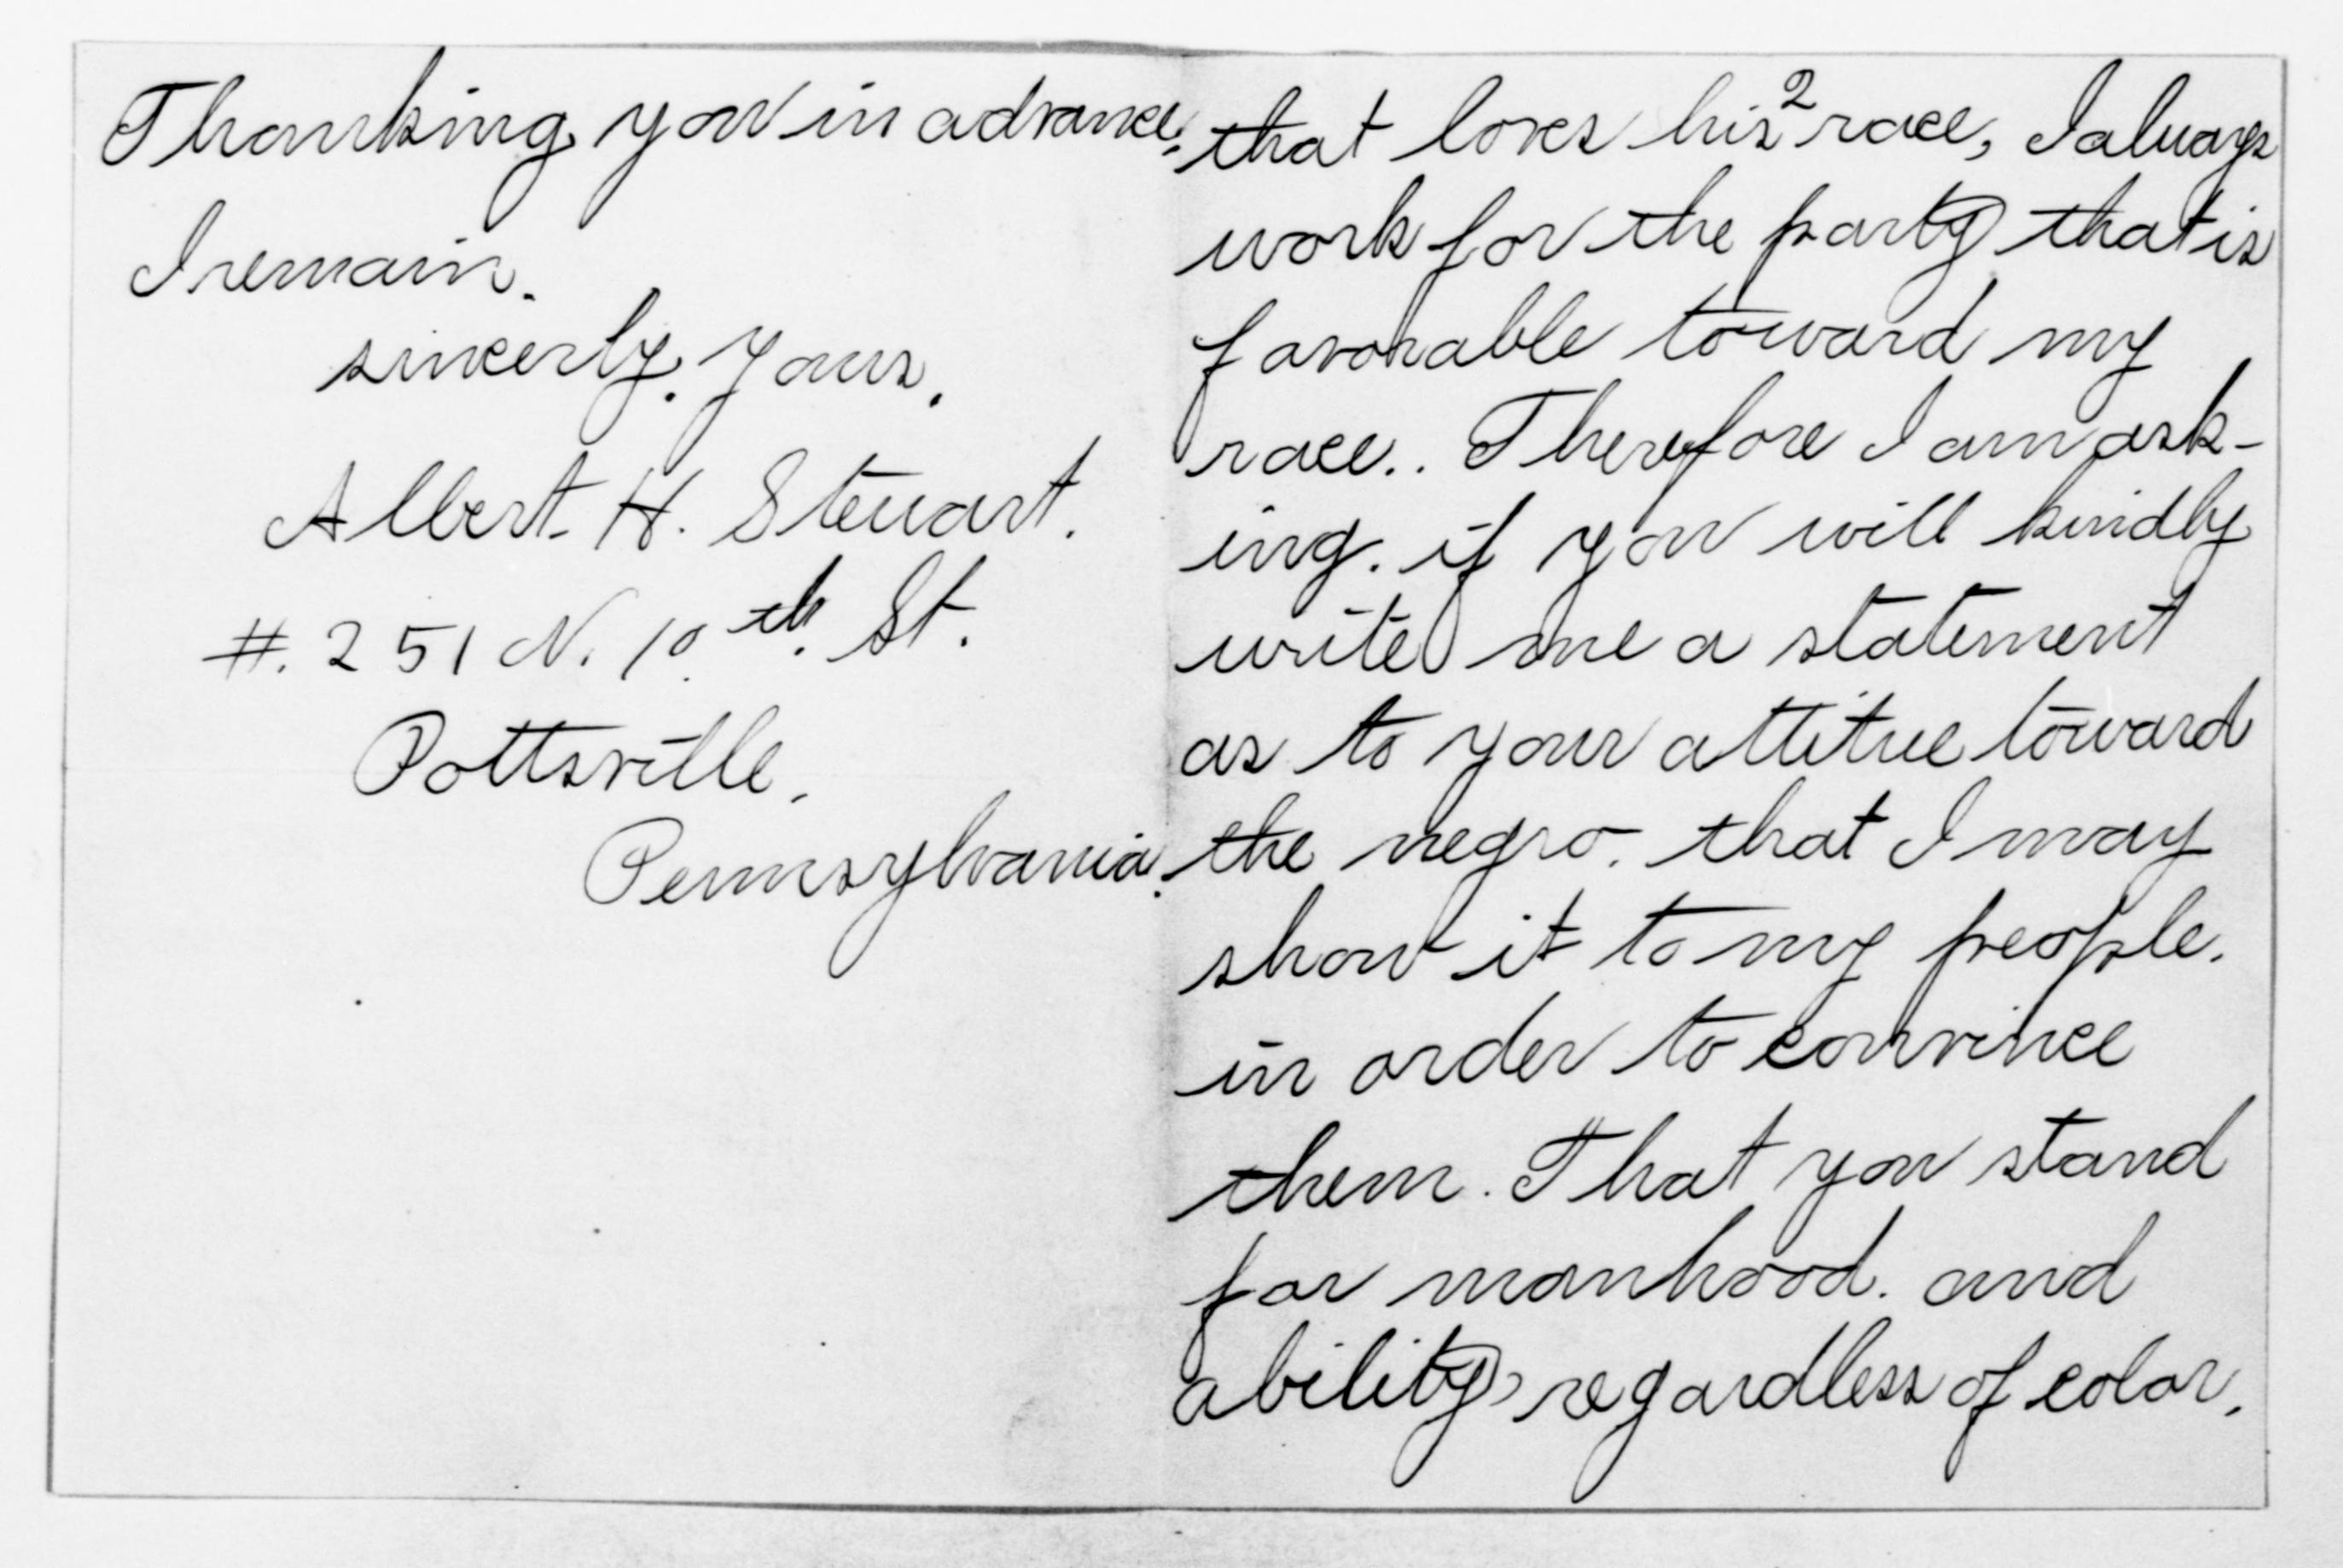 2
that loves his race, I always
work for the party that is
favorable toward my
race.. Therefore I am ask-
ing. if you will kindly
write me a statement
as to your attitue toward
the negro. that I may
show it to my people.
in order to convince
them. That you stand
for manhood. and
ability, regardless of color.
Thanking you in advance,
I remain.
sincerly. yours.
Albert H. Steuart.
#. 251 N. 10th. St.
Pottsville,
Pennsylvania.